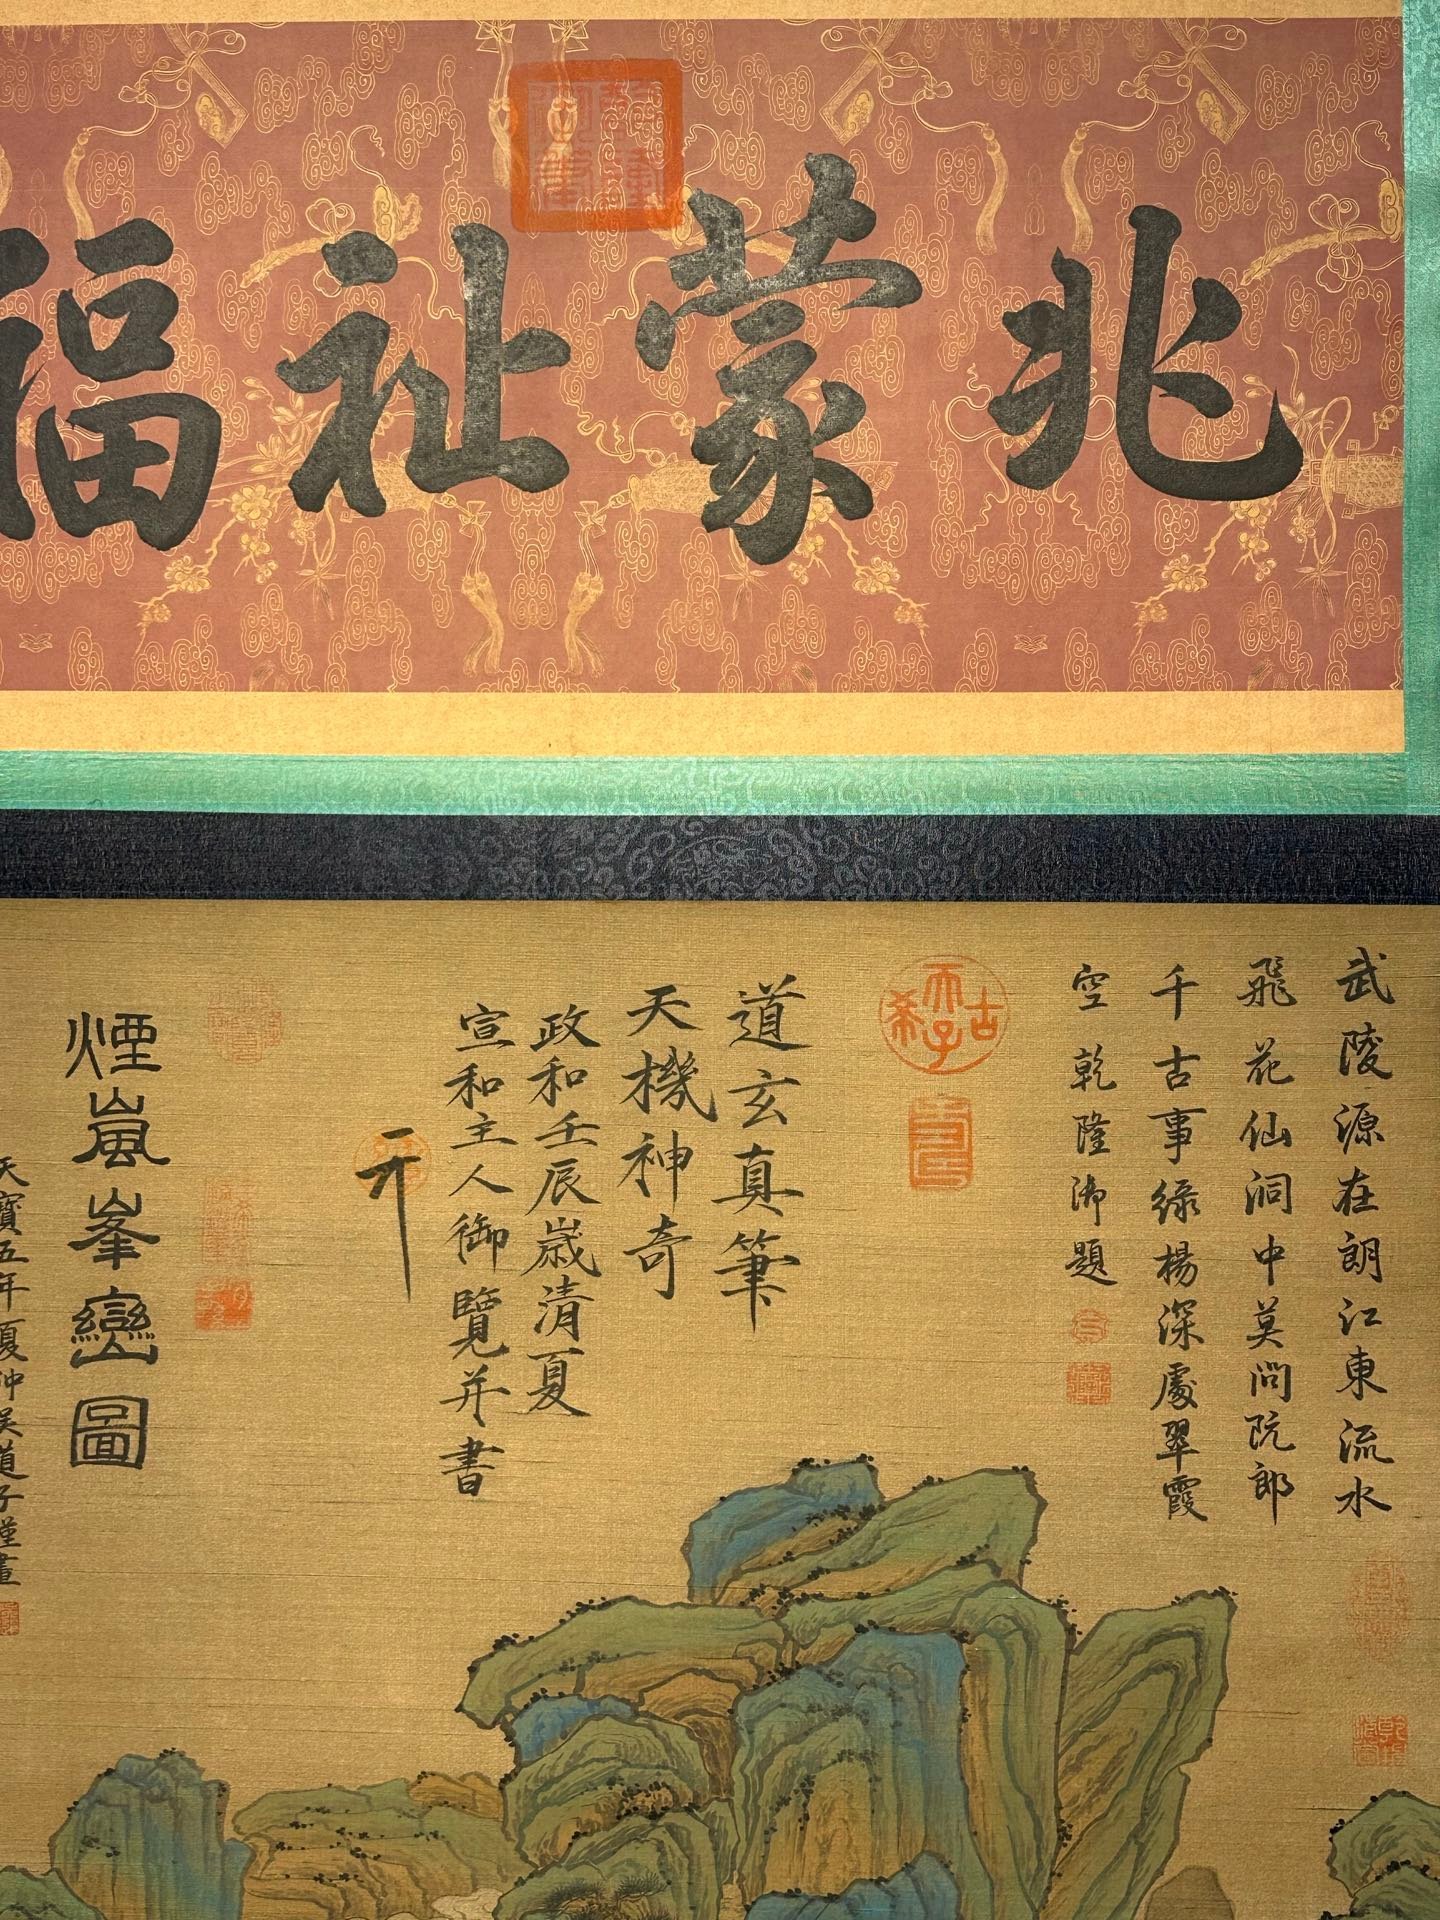 兆蒙祉福
武陵源在朗江東流水
飛花仙洞中莫問阮郎
千古事綠楊深處翠霞
空 乾隆御題
古希天子
道玄真筆
天機神奇
政和壬辰歲清夏
宣和主人御覽并書
煙嵐峯巒圖
天寶五年夏仲吳道子謹畫